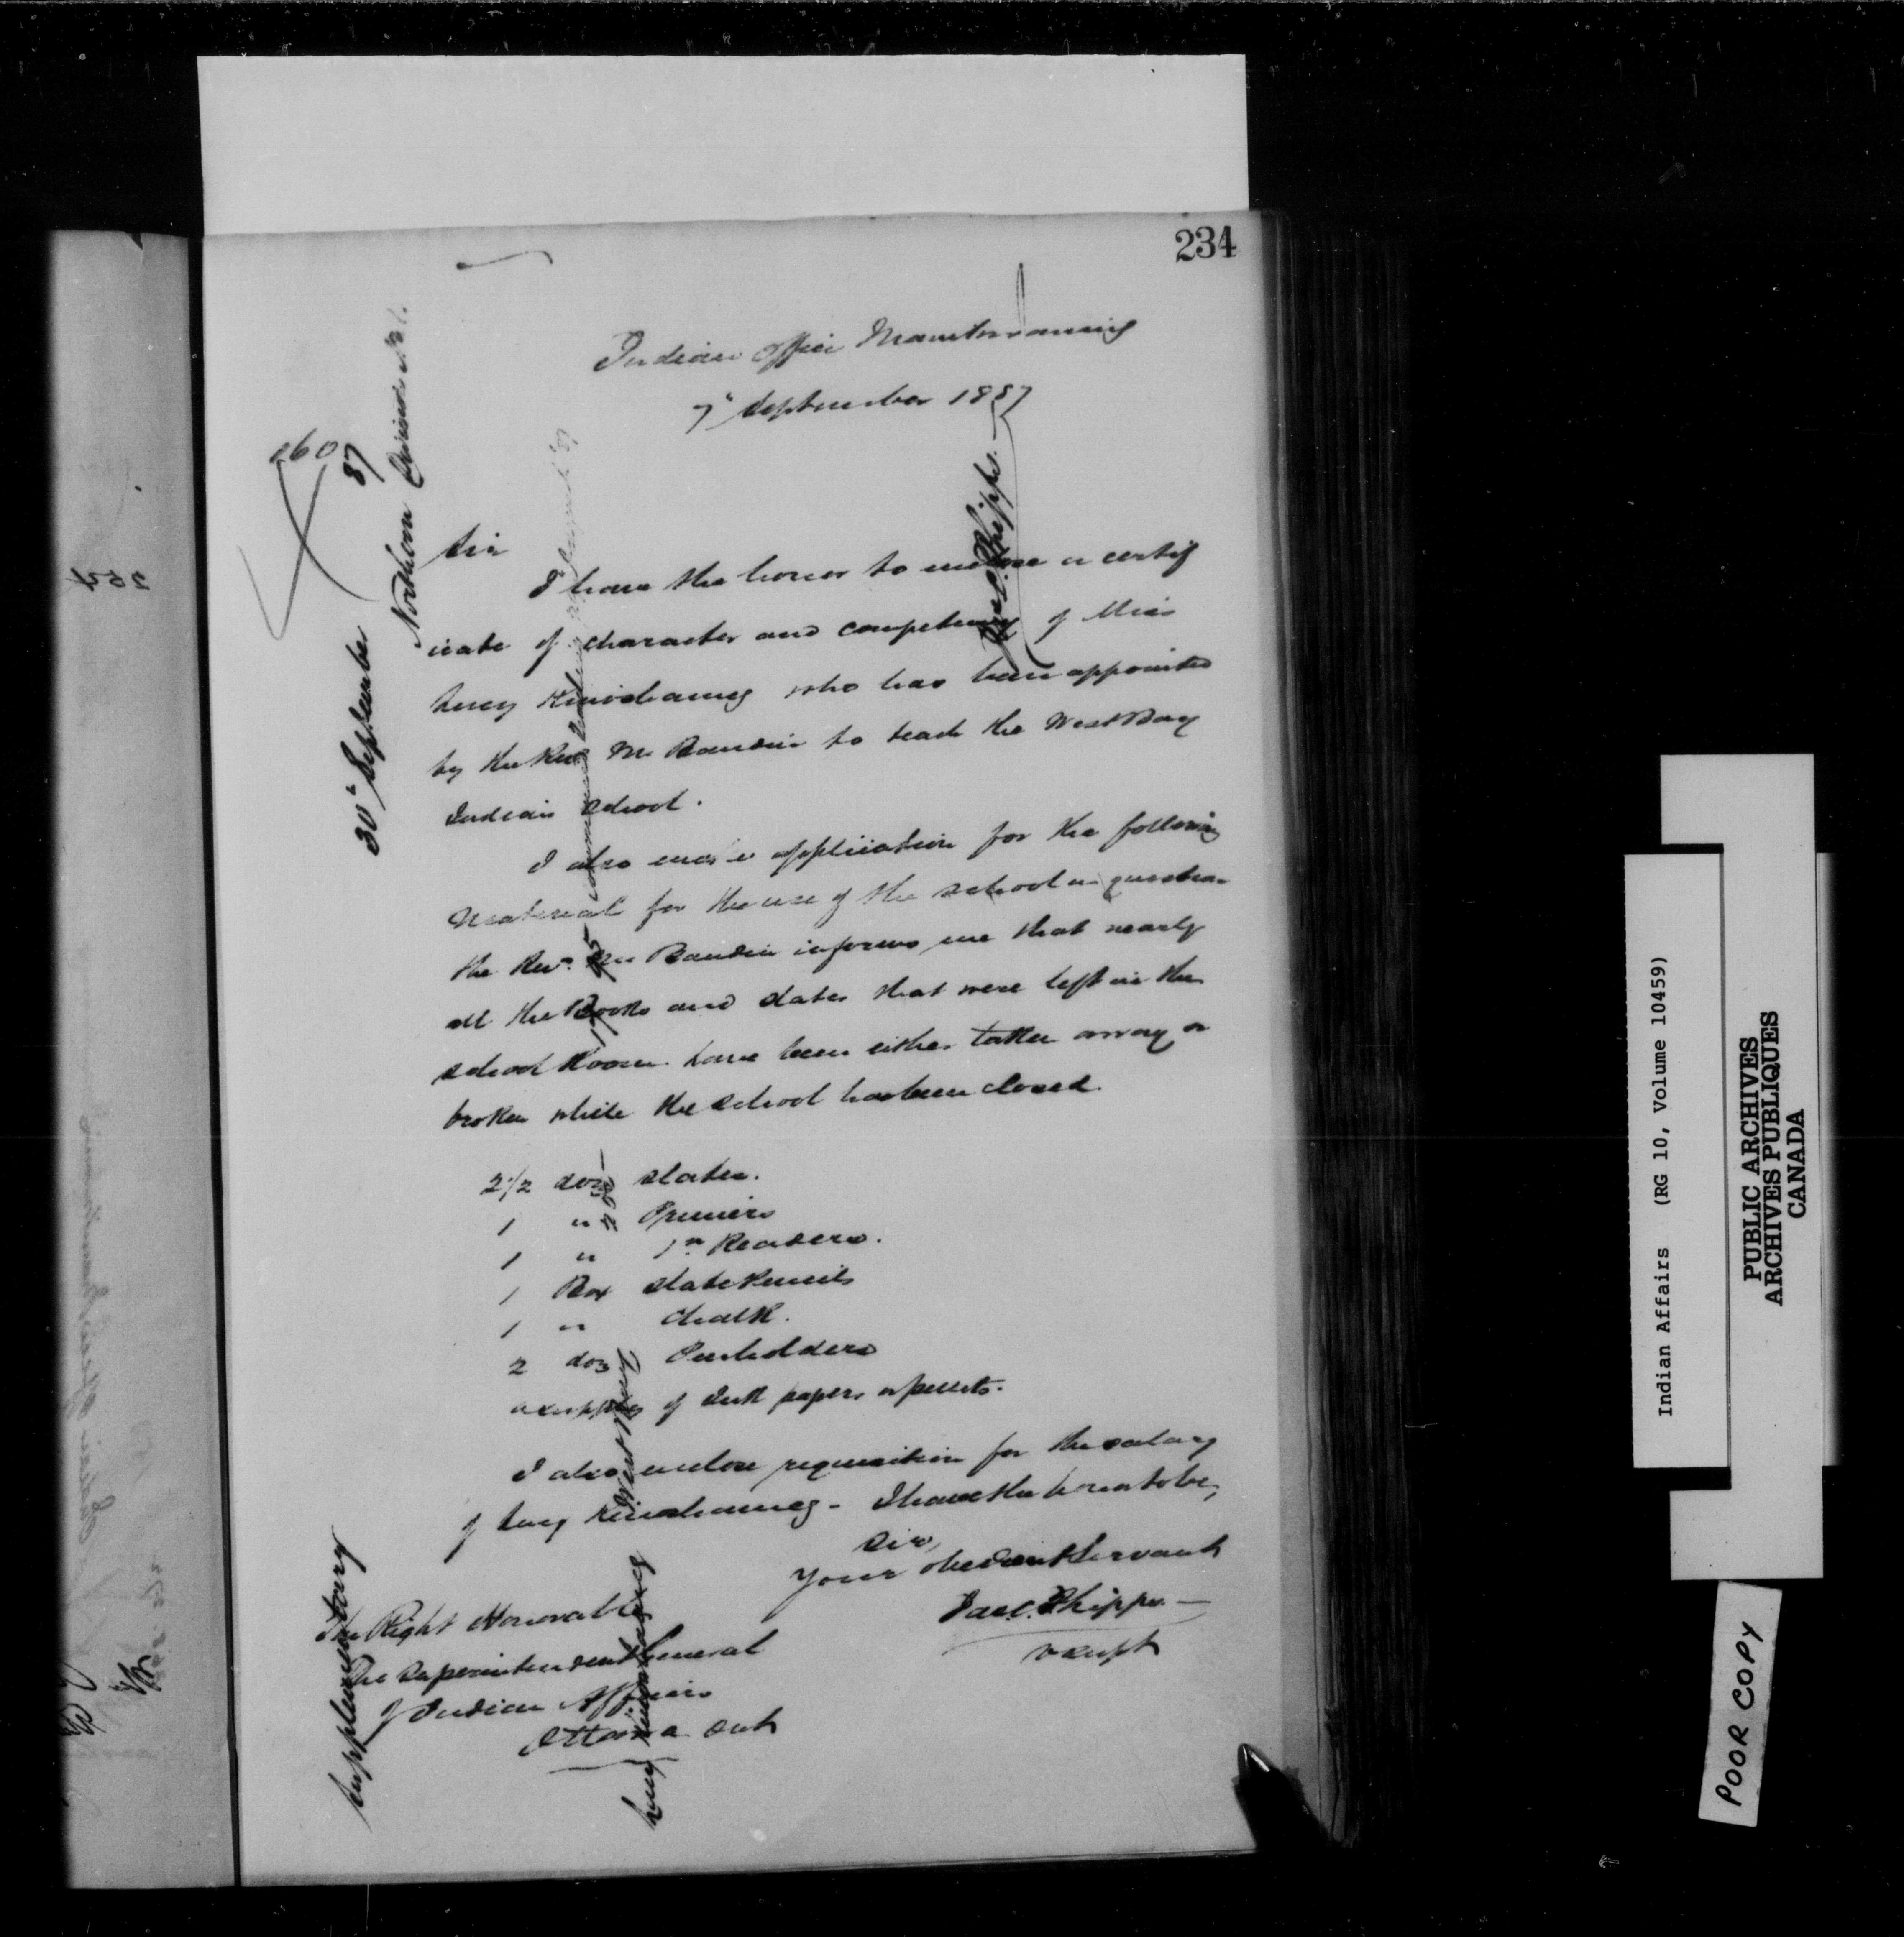 234
Indian Office Manitowaning
7" September 1887
Sir
I have the honor to enclose a certif
icate of character and competency of Miss
Lucy who has been appointed
by the Revd. Mr Baudin to teach the West Bay
Indian School.
I also enclose application for the following
Material for the use of the school in question
the Revd. Mr Baudin informs me that nearly
all the Books and slates that were left in the
School Room have been either taken away or
broken while the school has been closed.
2 1/2 doz slates.
1 " Primers
1 " 1st Readers.
1 Box slate Pencils
1 " Chalk.
2 doz Penholders
a supply of Ink papers
I also enclose requisition for the salary
of Lucy - I have the honor to be,
Sir,
Your obedient Servant
Jas. C. Phipps
V Supt
The Right Honorable
The Superintendent General
of Indian Affairs
Ottawa Ont
Supplementary
30" September 87
Northern Division No 1.
Lucy
West Bay
Jas. C. Phipps.
260
Indian Affairs (RG 10, Volume 10459)
PUBLIC ARCHIVES
ARCHIVES PUBLIQUES
CANADA
POOR COPY